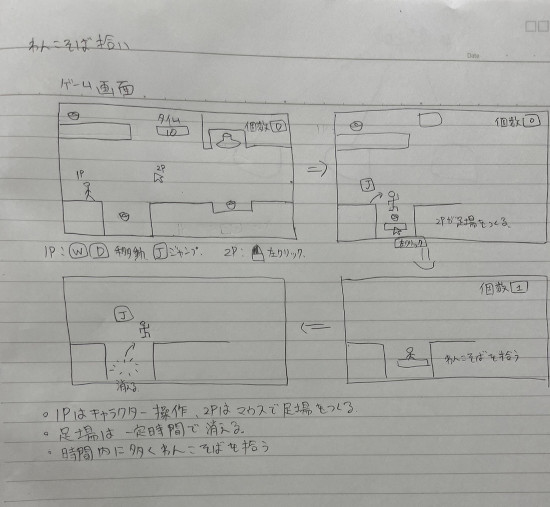 わんこそば拾い
Date
ゲーム画面
タイム
10
個数 0
1P
2P
1P: W D 移動 J ジャンプ. 2P: 左クリック.
個数 0
J
2Pが足場をつくる.
左クリック
個数 1
わんこそばを拾う
J
消える
・1Pはキャラクター操作、2Pはマウスで足場をつくる.
・足場は一定時間で消える.
・時間内に多くわんこそばを拾う